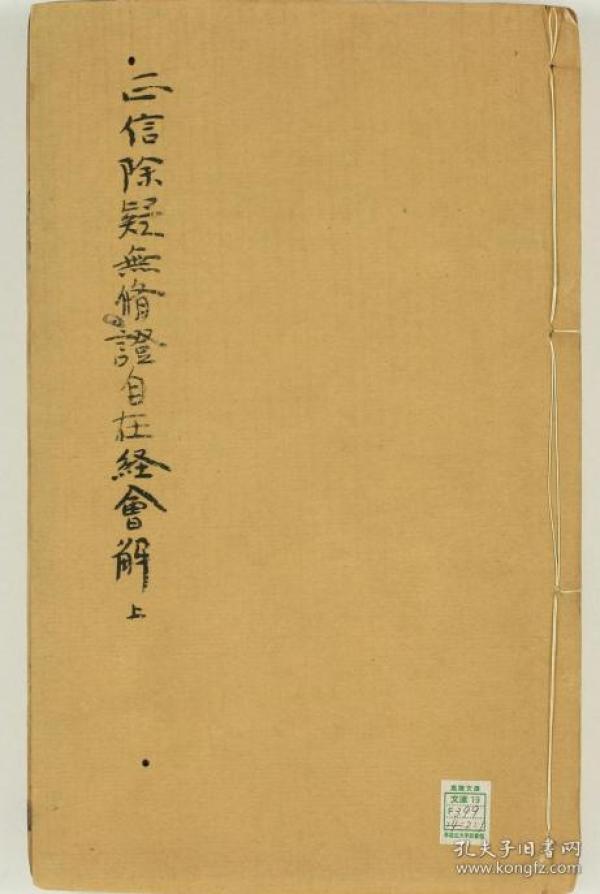 正信除疑無脩證自在経會解 上
文庫 19
F399
孔夫子旧书网
www.kongfz.com